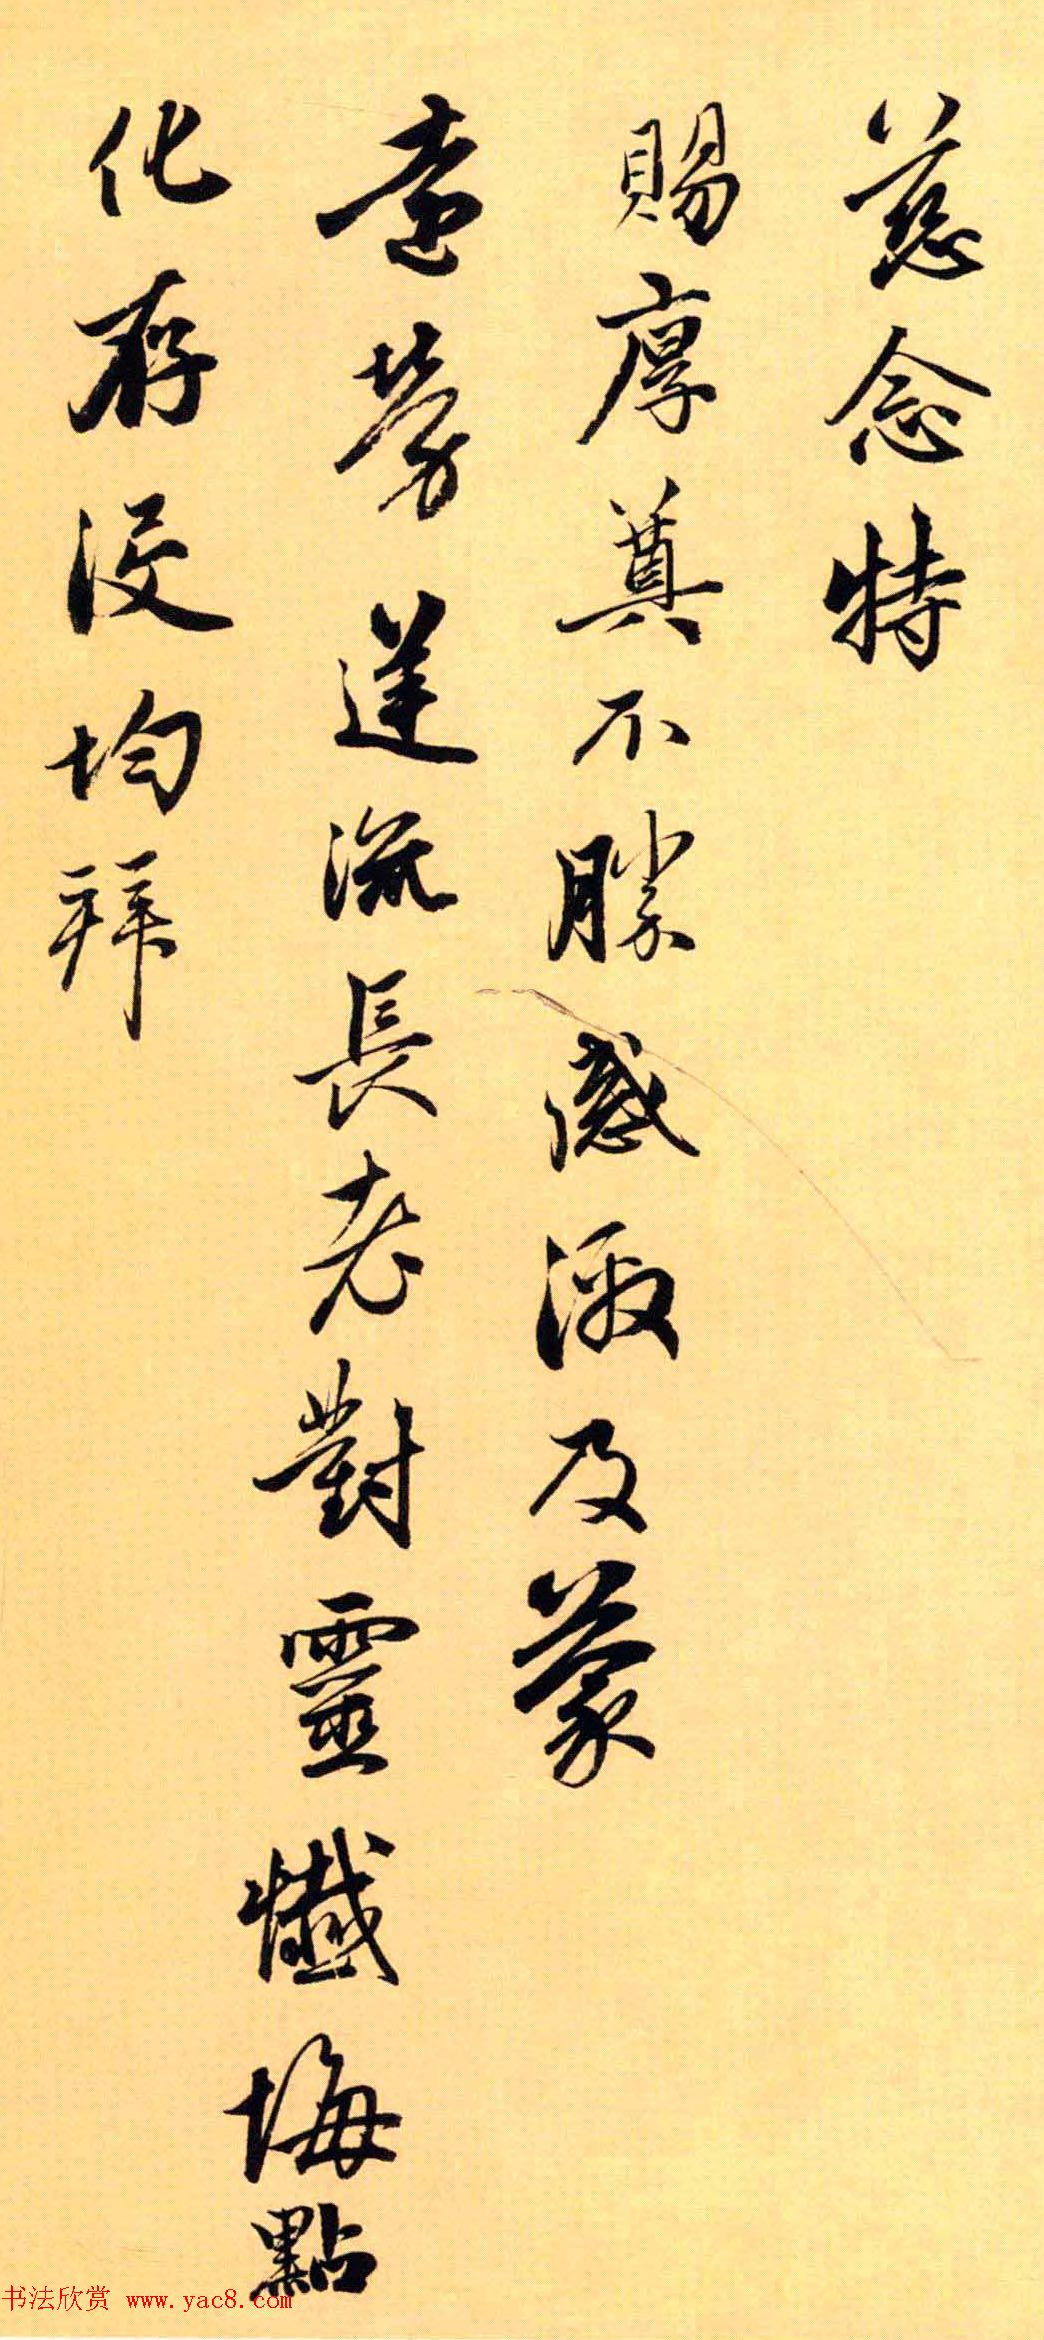 慈念特
賜厚奠不勝感激及蒙
遠勞蓬流長老對靈懺悔點
化存沒均拜
书法欣赏 www.yac8.com